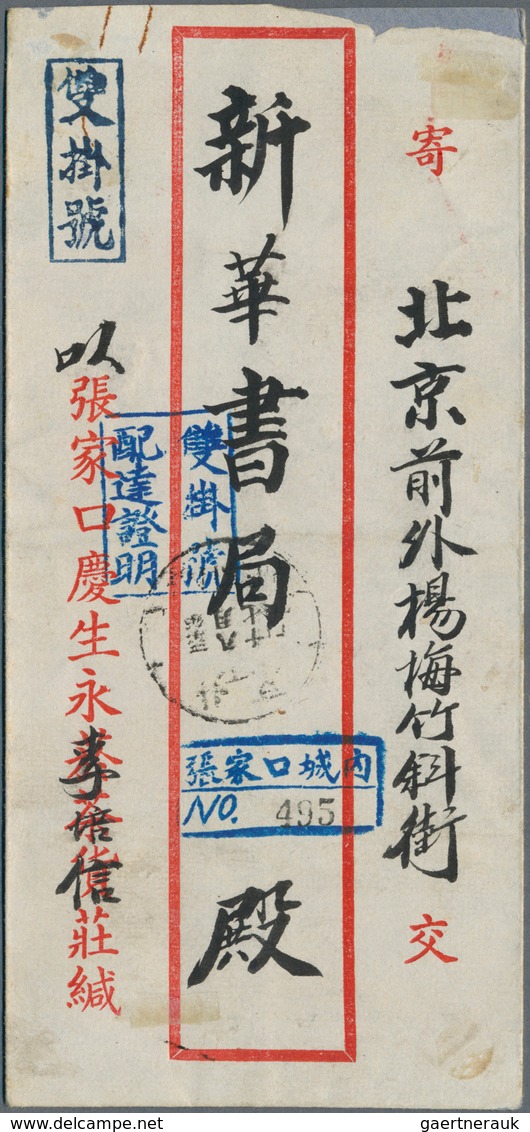 寄
北京前外楊梅竹斜街
交
新華書局
殿
雙掛號
雙掛號
配達證明
張家口城内
NO. 495
以
張家口慶生永
貨莊緘
信
gaertnerauk